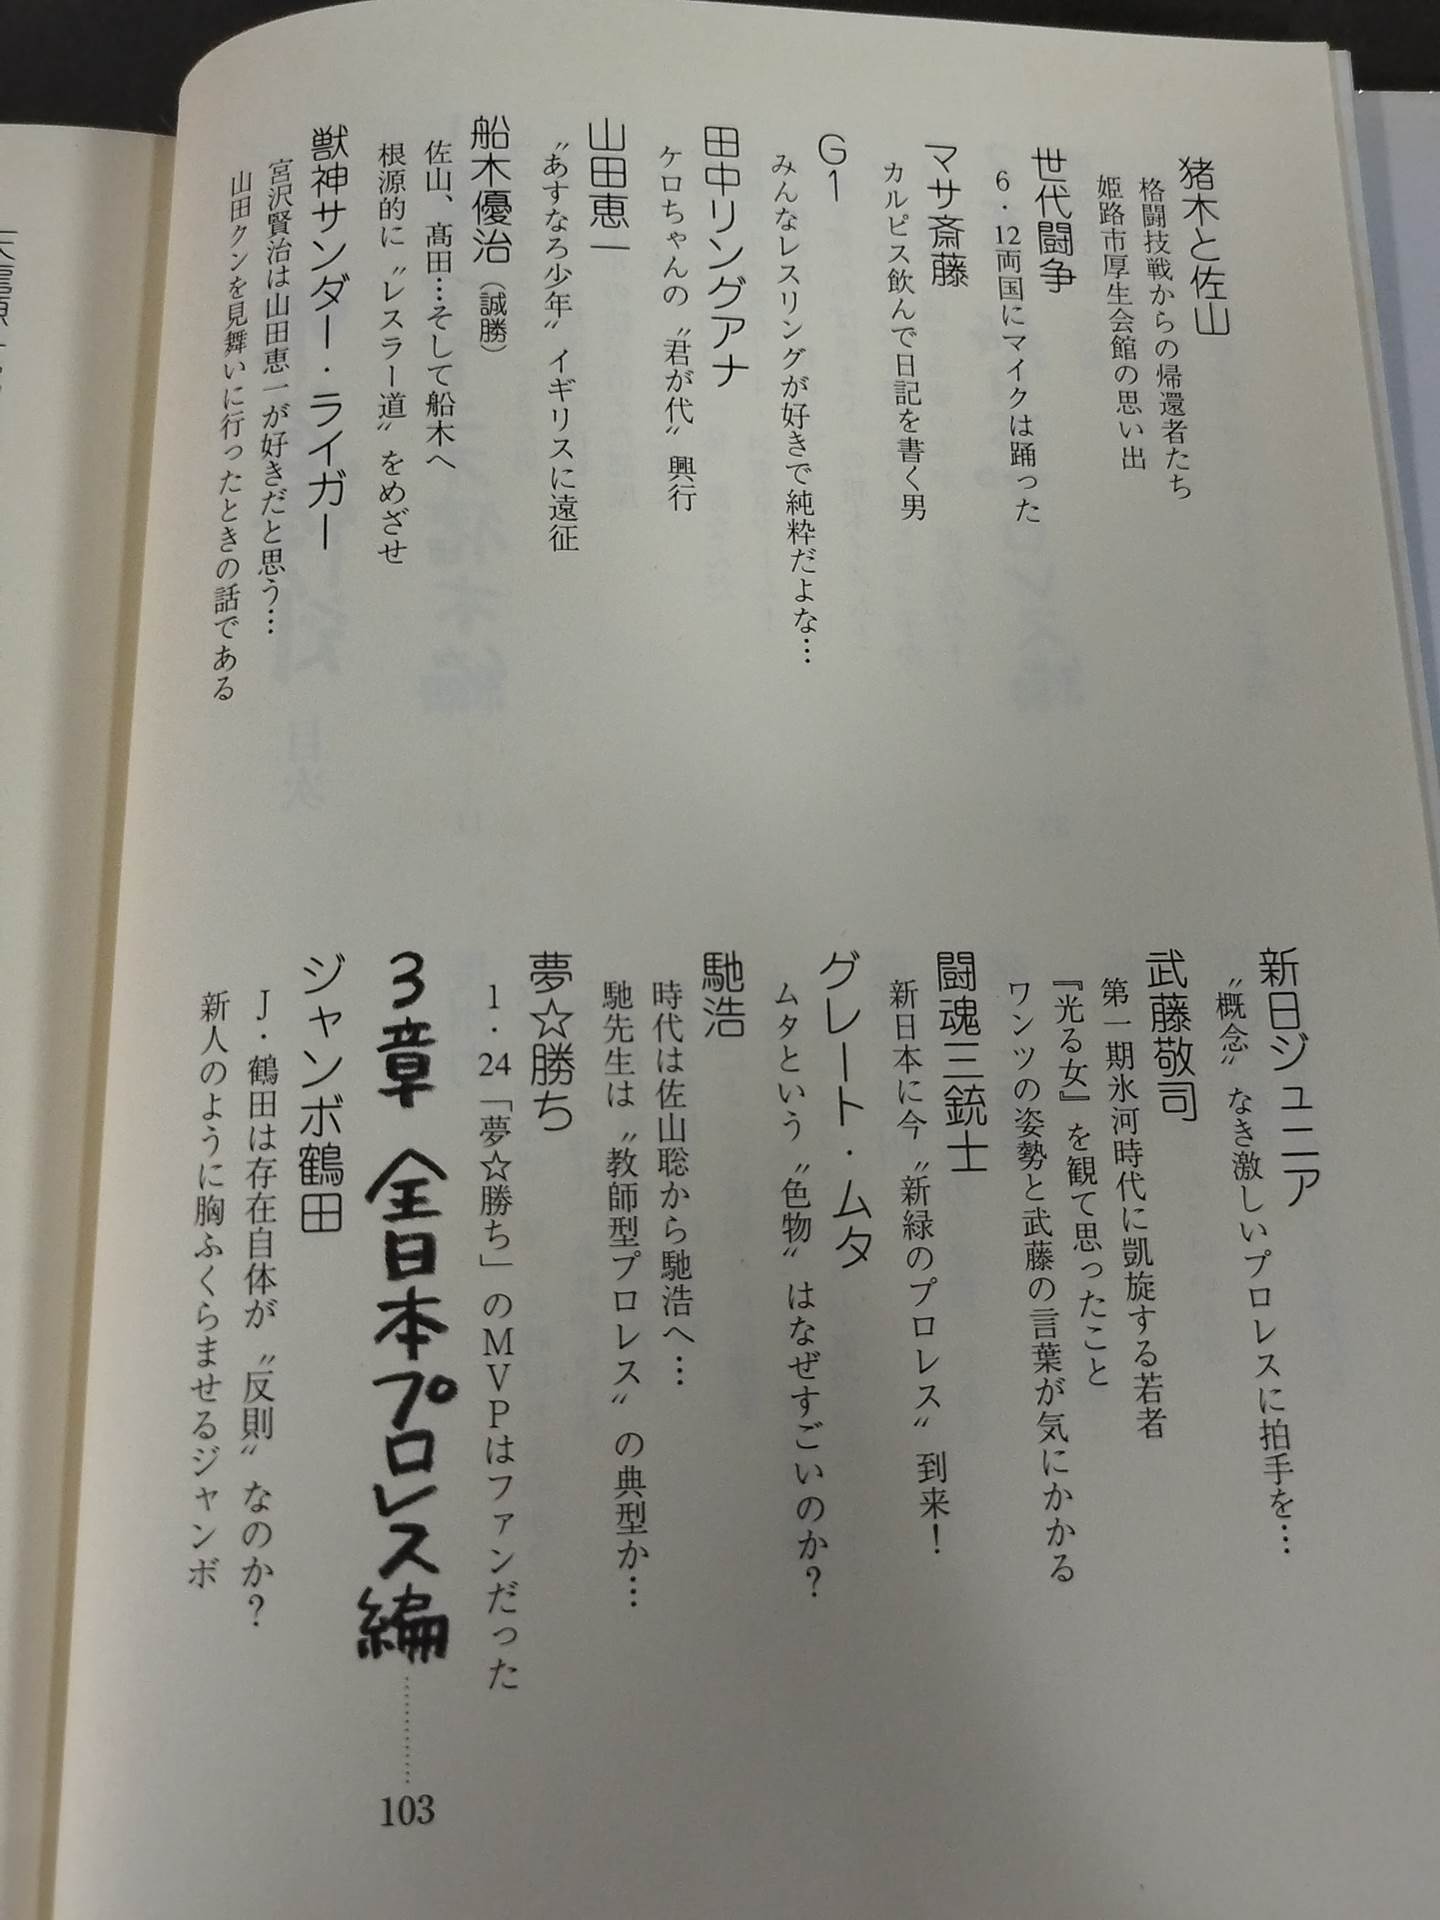 猪木と佐山
格闘技戦からの帰還者たち
姫路市厚生会館の思い出
世代闘争
6・12両国にマイクは踊った
マサ斎藤
カルピス飲んで日記を書く男
G1
みんなレスリングが好きで純粋だよな…
田中リングアナ
ケロちゃんの〝君が代〟興行
山田恵一
〝あすなろ少年〟イギリスに遠征
船木優治（誠勝）
佐山、髙田…そして船木へ
根源的に〝レスラー道〟をめざせ
獣神サンダー・ライガー
宮沢賢治は山田恵一が好きだと思う…
山田クンを見舞いに行ったときの話である
新日ジュニア
〝概念〟なき激しいプロレスに拍手を…
武藤敬司
第一期氷河時代に凱旋する若者
『光る女』を観て思ったこと
ワンツの姿勢と武藤の言葉が気にかかる
闘魂三銃士
新日本に今〝新緑のプロレス〟到来！
グレート・ムタ
ムタという〝色物〟はなぜすごいのか？
馳浩
時代は佐山聡から馳浩へ…
馳先生は〝教師型プロレス〟の典型か…
夢☆勝ち
1・24「夢☆勝ち」のMVPはファンだった
3章 全日本プロレス編…………103
ジャンボ鶴田
J・鶴田は存在自体が〝反則〟なのか？
新人のように胸ふくらませるジャンボ